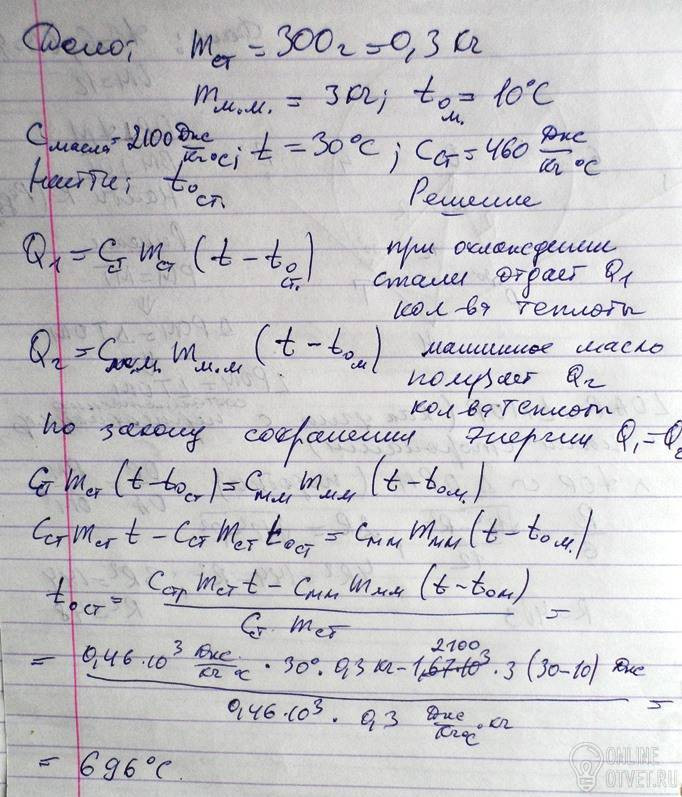 Дано; m ст = 300г = 0,3 кг
m м.м. = 3 кг; t о м. = 10°C
C масла = 2100 Дж/кг°C; t = 30°C; C ст = 460 Дж/кг°C
Найти; t о ст.
Решение
Q1 = C ст m ст (t − t о ст.)
при охлаждении
стали отдает Q1
кол-ва теплоты
Q2 = C м.м. m м.м (t − t о м)
машинное масло
получает Q2
кол-ва теплоты
по закону сохранения энергии Q1 = Q2
C ст m ст (t − t о ст) = C мм m мм (t − t о м.)
C ст m ст t − C ст m ст t о ст = C мм m мм (t − t о м.)
t о ст = (C ст m ст t − C мм m мм (t − t о м)) / (C ст. m ст) =
= (0,46·10³ Дж/кг°C · 30° · 0,3 кг − 2100 · 3 (30−10) Дж) / (0,46·10³ · 0,3 Дж/кг°C · кг) =
= 696°C.
ONLINE
OTVET.RU